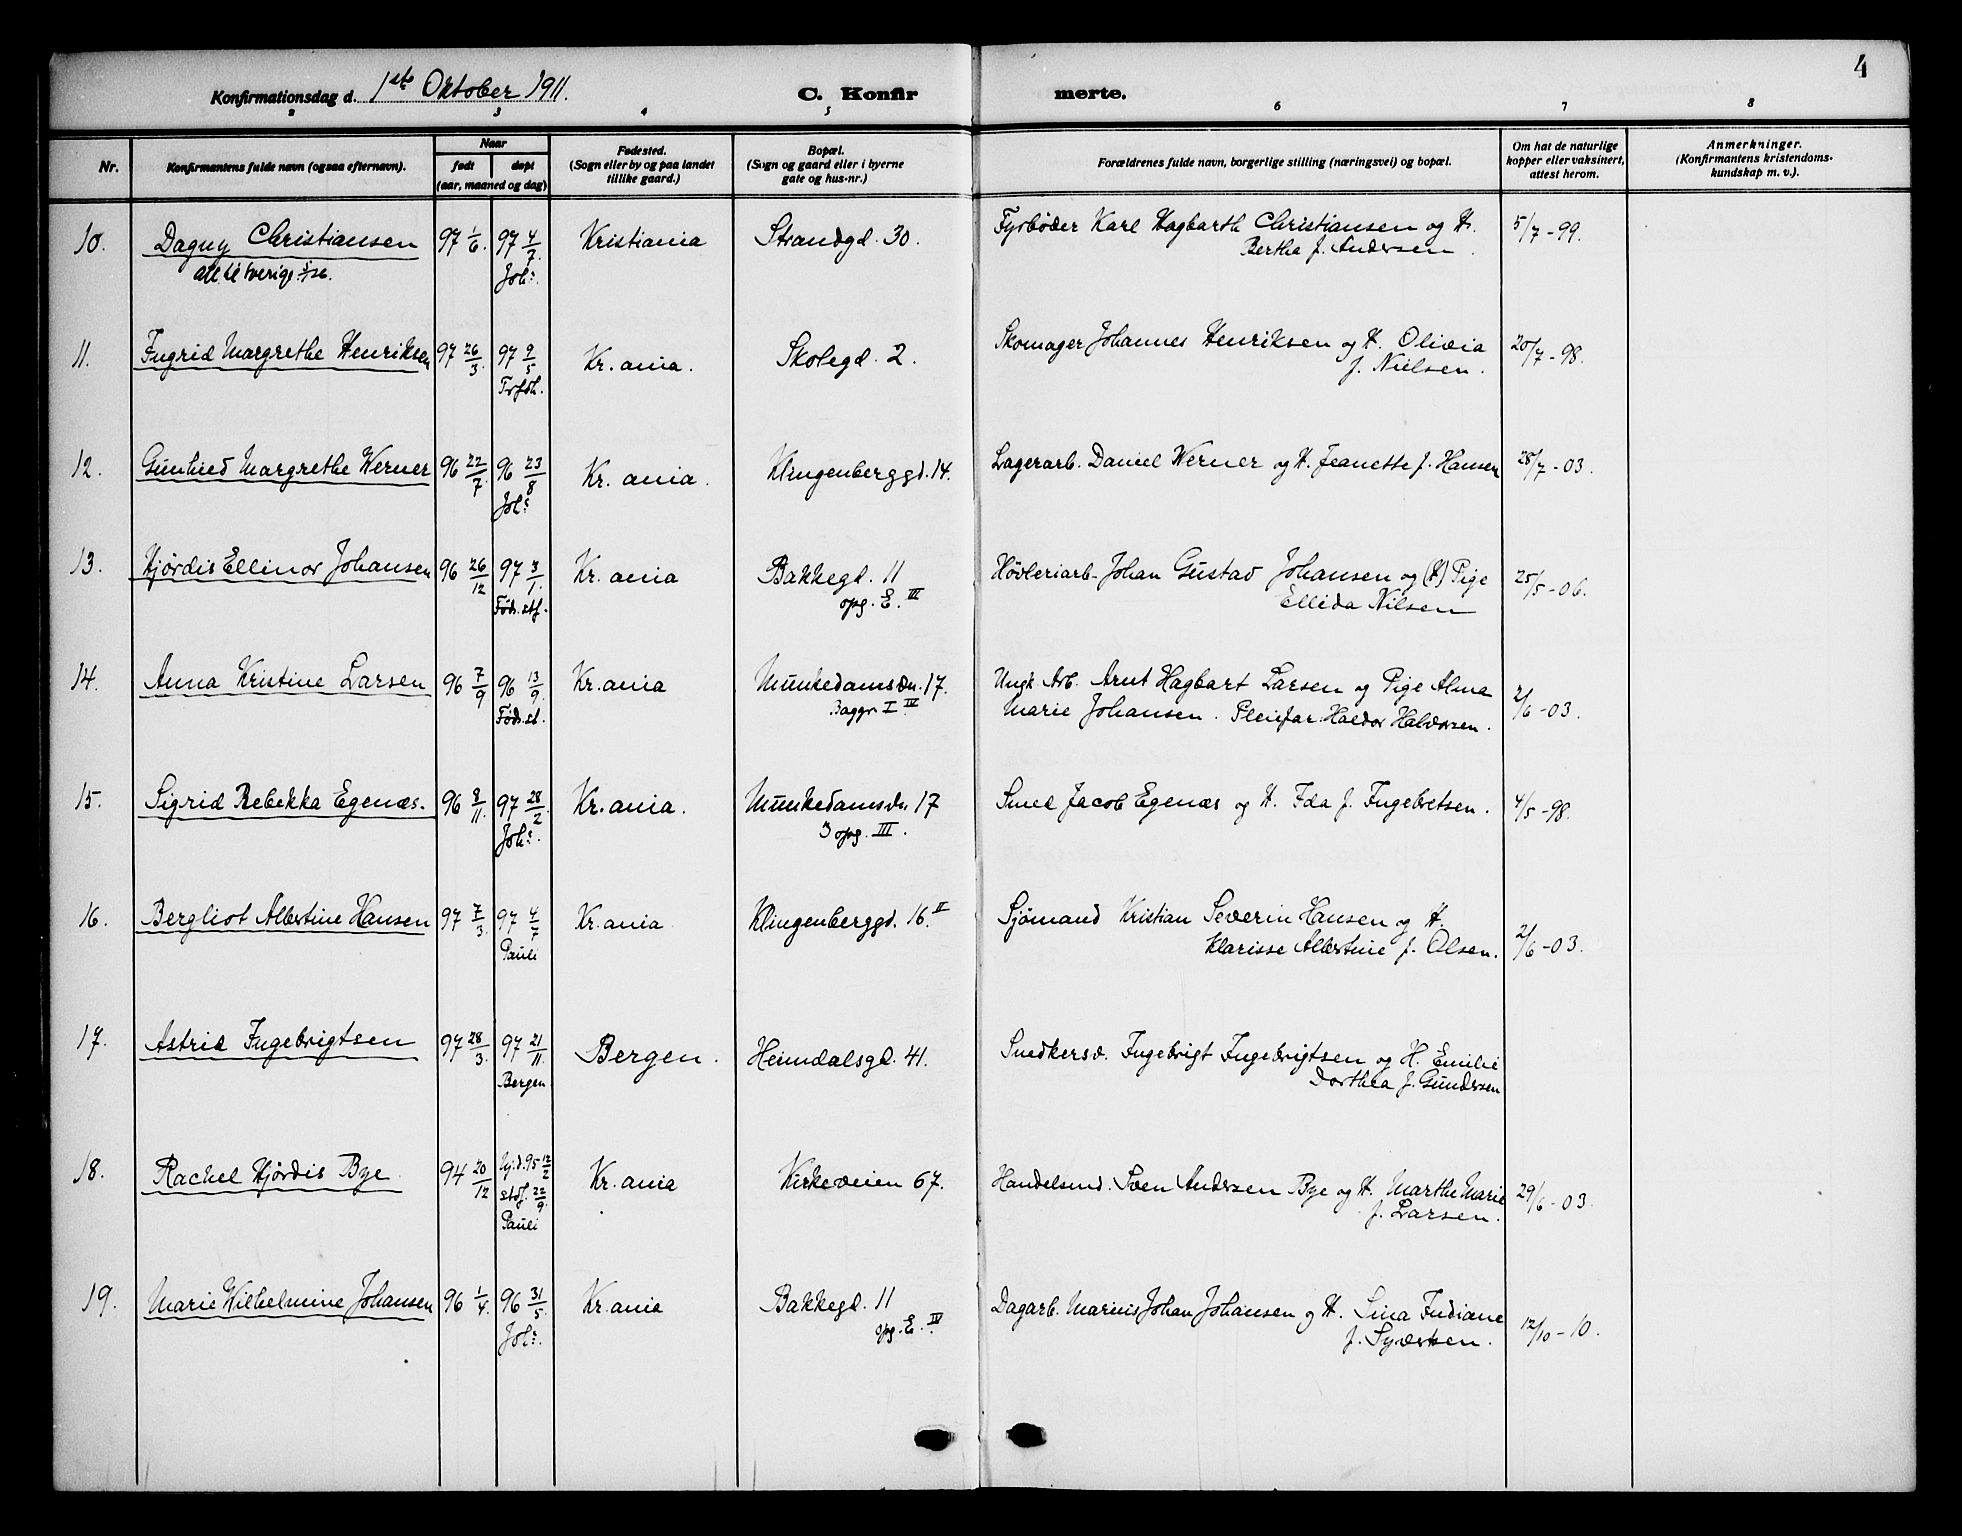 4
Konfirmationsdag d. 1ste Oktober 1911. C. Konfirmerte.
2 3 4 5 6 7 8
Nr. Konfirmantens fulde navn (ogsaa efternavn). Naar født døpt (aar, maaned og dag) Fødested. (Sogn eller by og paa landet tillike gaard.) Bopæl. (Sogn og gaard eller i byerne gate og hus-nr.) Forældrenes fulde navn, borgerlige stilling (næringsvei) og bopæl. Om hat de naturlige kopper eller vaksinert, attest herom. Anmerkninger. (Konfirmantens kristendoms-kundskap m. v.).
10. Dagny Christiansen 97 1/6. 97 4/7. Joh: Kristiania Strandgd. 30. Fyrbøder Karl Hagbarth Christiansen og H. 5/7-99.
Bertha f. Andersen.
11. Ingrid Margrethe Henriksen 97 26/3. 97 9/5 Trfdk. Kr.ania. Skolegd. 2. Skomager Johannes Henriksen og H. Olivia 20/7-98.
f. Nielsen.
12. Gunhild Margrethe Werner 96 22/7. 96 23/8 Joh: Kr.ania. Klingenberggd. 14. Lagerarb. Daniel Werner og H. Jeanette f. Hansen 28/7-03.
13. Hjørdis Ellinor Johansen 96 26/12 97 3/1. Føds.stf. Kr.ania Bakkegd. 11 Høvleriarb. Johan Gustav Johansen og (H) Pige 25/5-06.
opg. E. III Ellida Nilsen
14. Anna Kristine Larsen 96 7/9 96 13/9. Føds.st. Kr.ania Munkedamsvn. 17. Ungk. Arb. Arnt Hagbart Larsen og Pige Alma 2/6-03.
Baggr. I IV Marie Johansen. Pleiefar. Haldor Halvorsen.
15. Sigrid Rebekka Egenæs. 96 8/11. 97 28/2 Joh: Kr.ania. Munkedamsvn 17 Smed Jacob Egenæs og H. Ida f. Ingebretsen. 4/5-98.
3 opg. III.
16. Bergliot Albertine Hansen 97 7/3. 97 4/7 Pauli Kr.ania Klingenberggd. 16 II Sjømand Kristian Severin Hansen og H. 2/6-03.
Klarisse Albertine f. Olsen.
17. Astrid Ingebrigtsen 97 28/3. 97 21/11. Bergen Bergen. Heimdalsgd. 41. Snedkersv. Ingebrigt Ingebrigtsen og H. Emilie
Dorthea f. Gundersen
18. Rachel Hjørdis Bye 94 20/12 Hj.d. 95 12/2 stdf. 22/9. Pauli Kr.ania Kirkeveien 67. Handelsmd. Sven Andersen Bye og H. Marthe Marie 29/6-03.
f. Larsen.
19. Marie Wilhelmine Johansen 96 1/4. 96 31/5. Joh: Kr.ania Bakkegd. 11 Dagarb. Marius Johan Johansen og H. Sina Indiane 12/10-10.
opg. E. IV f. Syversen.